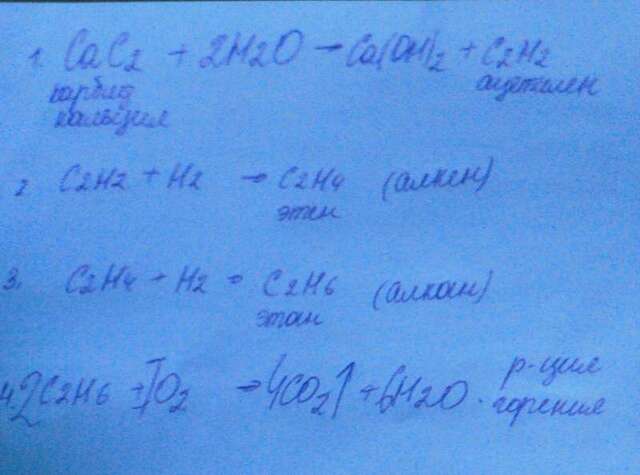 1. CaC2 + 2H2O → Ca(OH)2 + C2H2
карбид ацетилен
кальция
2 C2H2 + H2 → C2H4 (алкен)
этен
3. C2H4 + H2 → C2H6 (алкан)
этан
4. 2C2H6 + 7O2 → 4CO2↑ + 6H2O. р-ция
горения